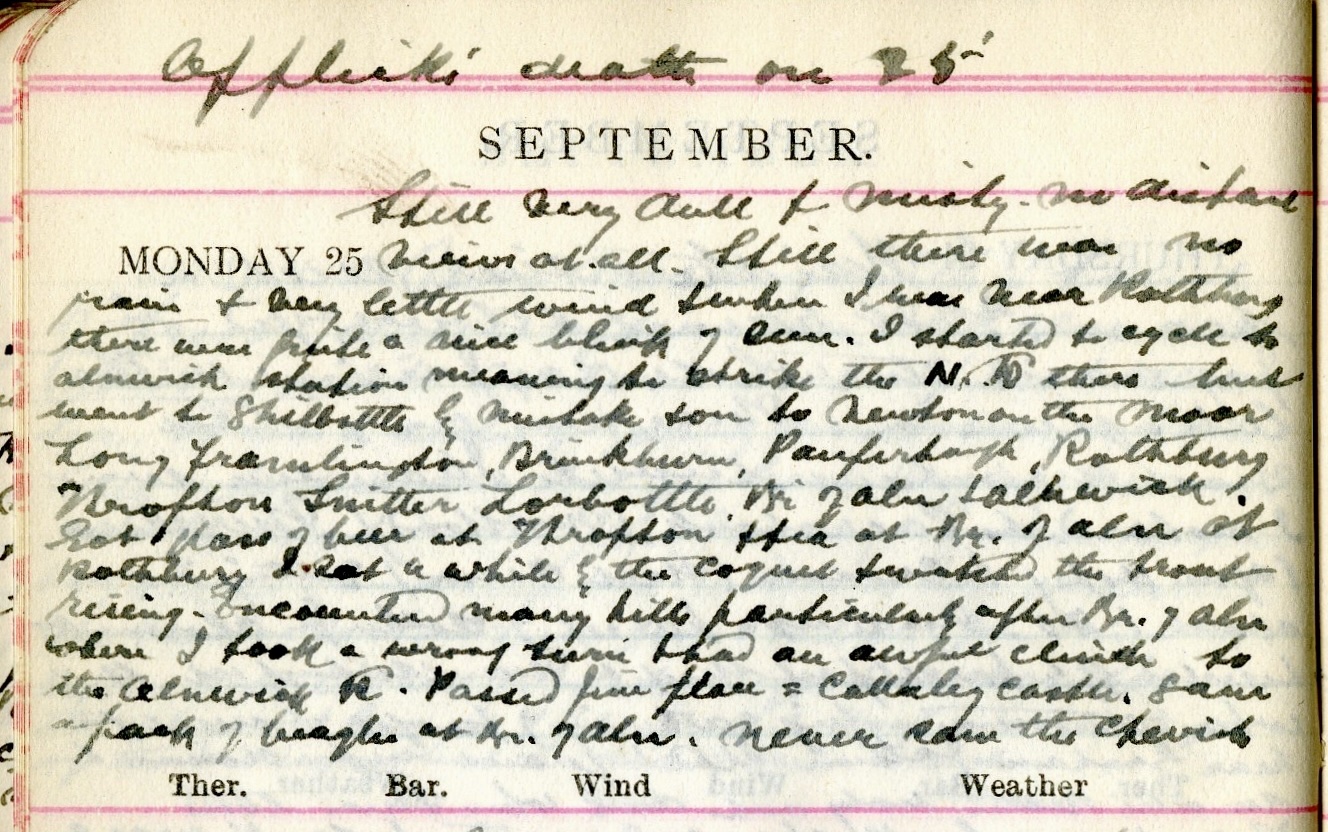 Afflick's death on 25'
SEPTEMBER.
Still very dull & misty. no distant
MONDAY 25 views at all. Still there was no
rain & very little wind & when I was near Rothbury
there was quite a nice blink of sun. I started to cycle to
Alnwick station meaning to strike the N. R there but
went to Shilbottle by mistake & on to Newton on the Moor
Long Framlington, Brinkburn, Pauperhaugh, Rothbury
Thropton Snitter Lorbottle, Br. of Aln & Alnwick.
Got glass of beer at Thropton & tea at Br. of Aln At
Rothbury I sat a while by the Coquet & watched the trout
rising. Encountered many hills particularly after Br. of Aln
where I took a wrong turn & had an awful climb to
the Alnwick R. Passed fine place = Callaley Castle. Saw
a pack of beagles at Br. of Aln. Never saw the Cheviots
Ther. Bar. Wind Weather